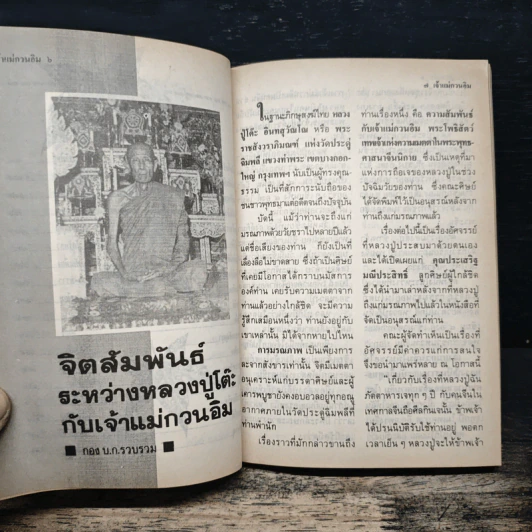 เจ้าแม่กวนอิม ๖
จิตสัมพันธ์
ระหว่างหลวงปู่โต๊ะ
กับเจ้าแม่กวนอิม
■ กอง บ.ก.รวบรวม ■
๗ เจ้าแม่กวนอิม
ในฐานะภิกษุสงฆ์ไทย หลวง
ปู่โต๊ะ อินทสุวัณโณ หรือ พระ
ราชสังวราภิมณฑ์ แห่งวัดประดู่
ฉิมพลี แขวงท่าพระ เขตบางกอก-
ใหญ่ กรุงเทพฯ นับเป็นผู้ทรงคุณ-
ธรรม เป็นที่สักการะนับถือของ
ชนชาวพุทธมาแต่อดีตจนถึงปัจจุบัน
บัดนี้ แม้ว่าท่านจะถึงแก่
มรณภาพด้วยวัยชราไปหลายปีแล้ว
แต่ชื่อเสียงของท่าน ก็ยังเป็นที่
เลื่องลือไม่ขาดสาย ซึ่งถ้าเป็นศิษย์
ที่เคยมีโอกาสได้กราบนมัสการ
องค์ท่าน เคยรับความเมตตาจาก
ท่านแล้วอย่างใกล้ชิด จะมีความ
รู้สึกเสมือนหนึ่งว่า ท่านยังอยู่กับ
เขาเหล่านั้น มิได้จากหายไปไหน
การมรณภาพ เป็นเพียงการ
ละจากสังขารเท่านั้น จิตมีเมตตา
อนุเคราะห์แก่บรรดาศิษย์และผู้
เคารพบูชายังคงอบอวลอยู่ทุกอณู
อากาศภายในวัดประดู่ฉิมพลีที่
ท่านพำนัก
เรื่องราวที่มักกล่าวขานถึง
ท่านเรื่องหนึ่ง คือ ความสัมพันธ์
กับเจ้าแม่กวนอิม พระโพธิสัตว์
เทพธิดาแห่งความเมตตาในพระพุทธ-
ศาสนาจีนนิกาย ซึ่งเป็นเหตุที่มา
แห่งการถือเจของหลวงปู่ในช่วง
ปัจฉิมวัยของท่าน ซึ่งคณะศิษย์
ได้จัดพิมพ์ไว้เป็นอนุสรณ์หลังจาก
ท่านถึงแก่มรณภาพแล้ว
เรื่องต่อไปนี้เป็นเรื่องอัศจรรย์
ที่หลวงปู่ประสบมาด้วยตนเอง
และได้เปิดเผยแก่ คุณประเสริฐ
มณีประสิทธิ์ ลูกศิษย์ผู้ใกล้ชิด
ซึ่งได้นำมาเล่าหลังจากที่หลวงปู่
ถึงแก่มรณภาพไปแล้วในหนังสือที่
จัดเป็นอนุสรณ์แก่ท่าน
คณะผู้จัดทำเห็นเป็นเรื่องที่
อัศจรรย์มีค่าควรแก่การสนใจ
จึงขอนำมาแพร่หลาย ณ โอกาสนี้
"เกี่ยวกับเรื่องที่หลวงปู่ฉัน
ภัตตาหารเจทุก ๆ ปี กับคนจีนใน
เทศกาลจีนถือศีลกินเจนั้น ข้าพเจ้า
ได้ปรนนิบัติรับใช้ท่านอยู่ พอตก
เวลาเย็น ๆ หลวงปู่จะให้ข้าพเจ้า